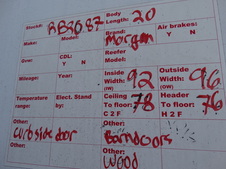 Stock#: RB2087 Body Length: 20
Make: Model: Brand: Morgan Air brakes: Y N
Gvw: CDL: Y N Reefer Model:
Mileage: Year: Inside Width: 92 (IW) Outside Width: 96 (OW)
Temperature range: Elect. Stand by: Ceiling To floor: 78 C 2 F Header To floor: 76 H 2 F
Other: Curbside door Other: Barndoors
Other: Wood